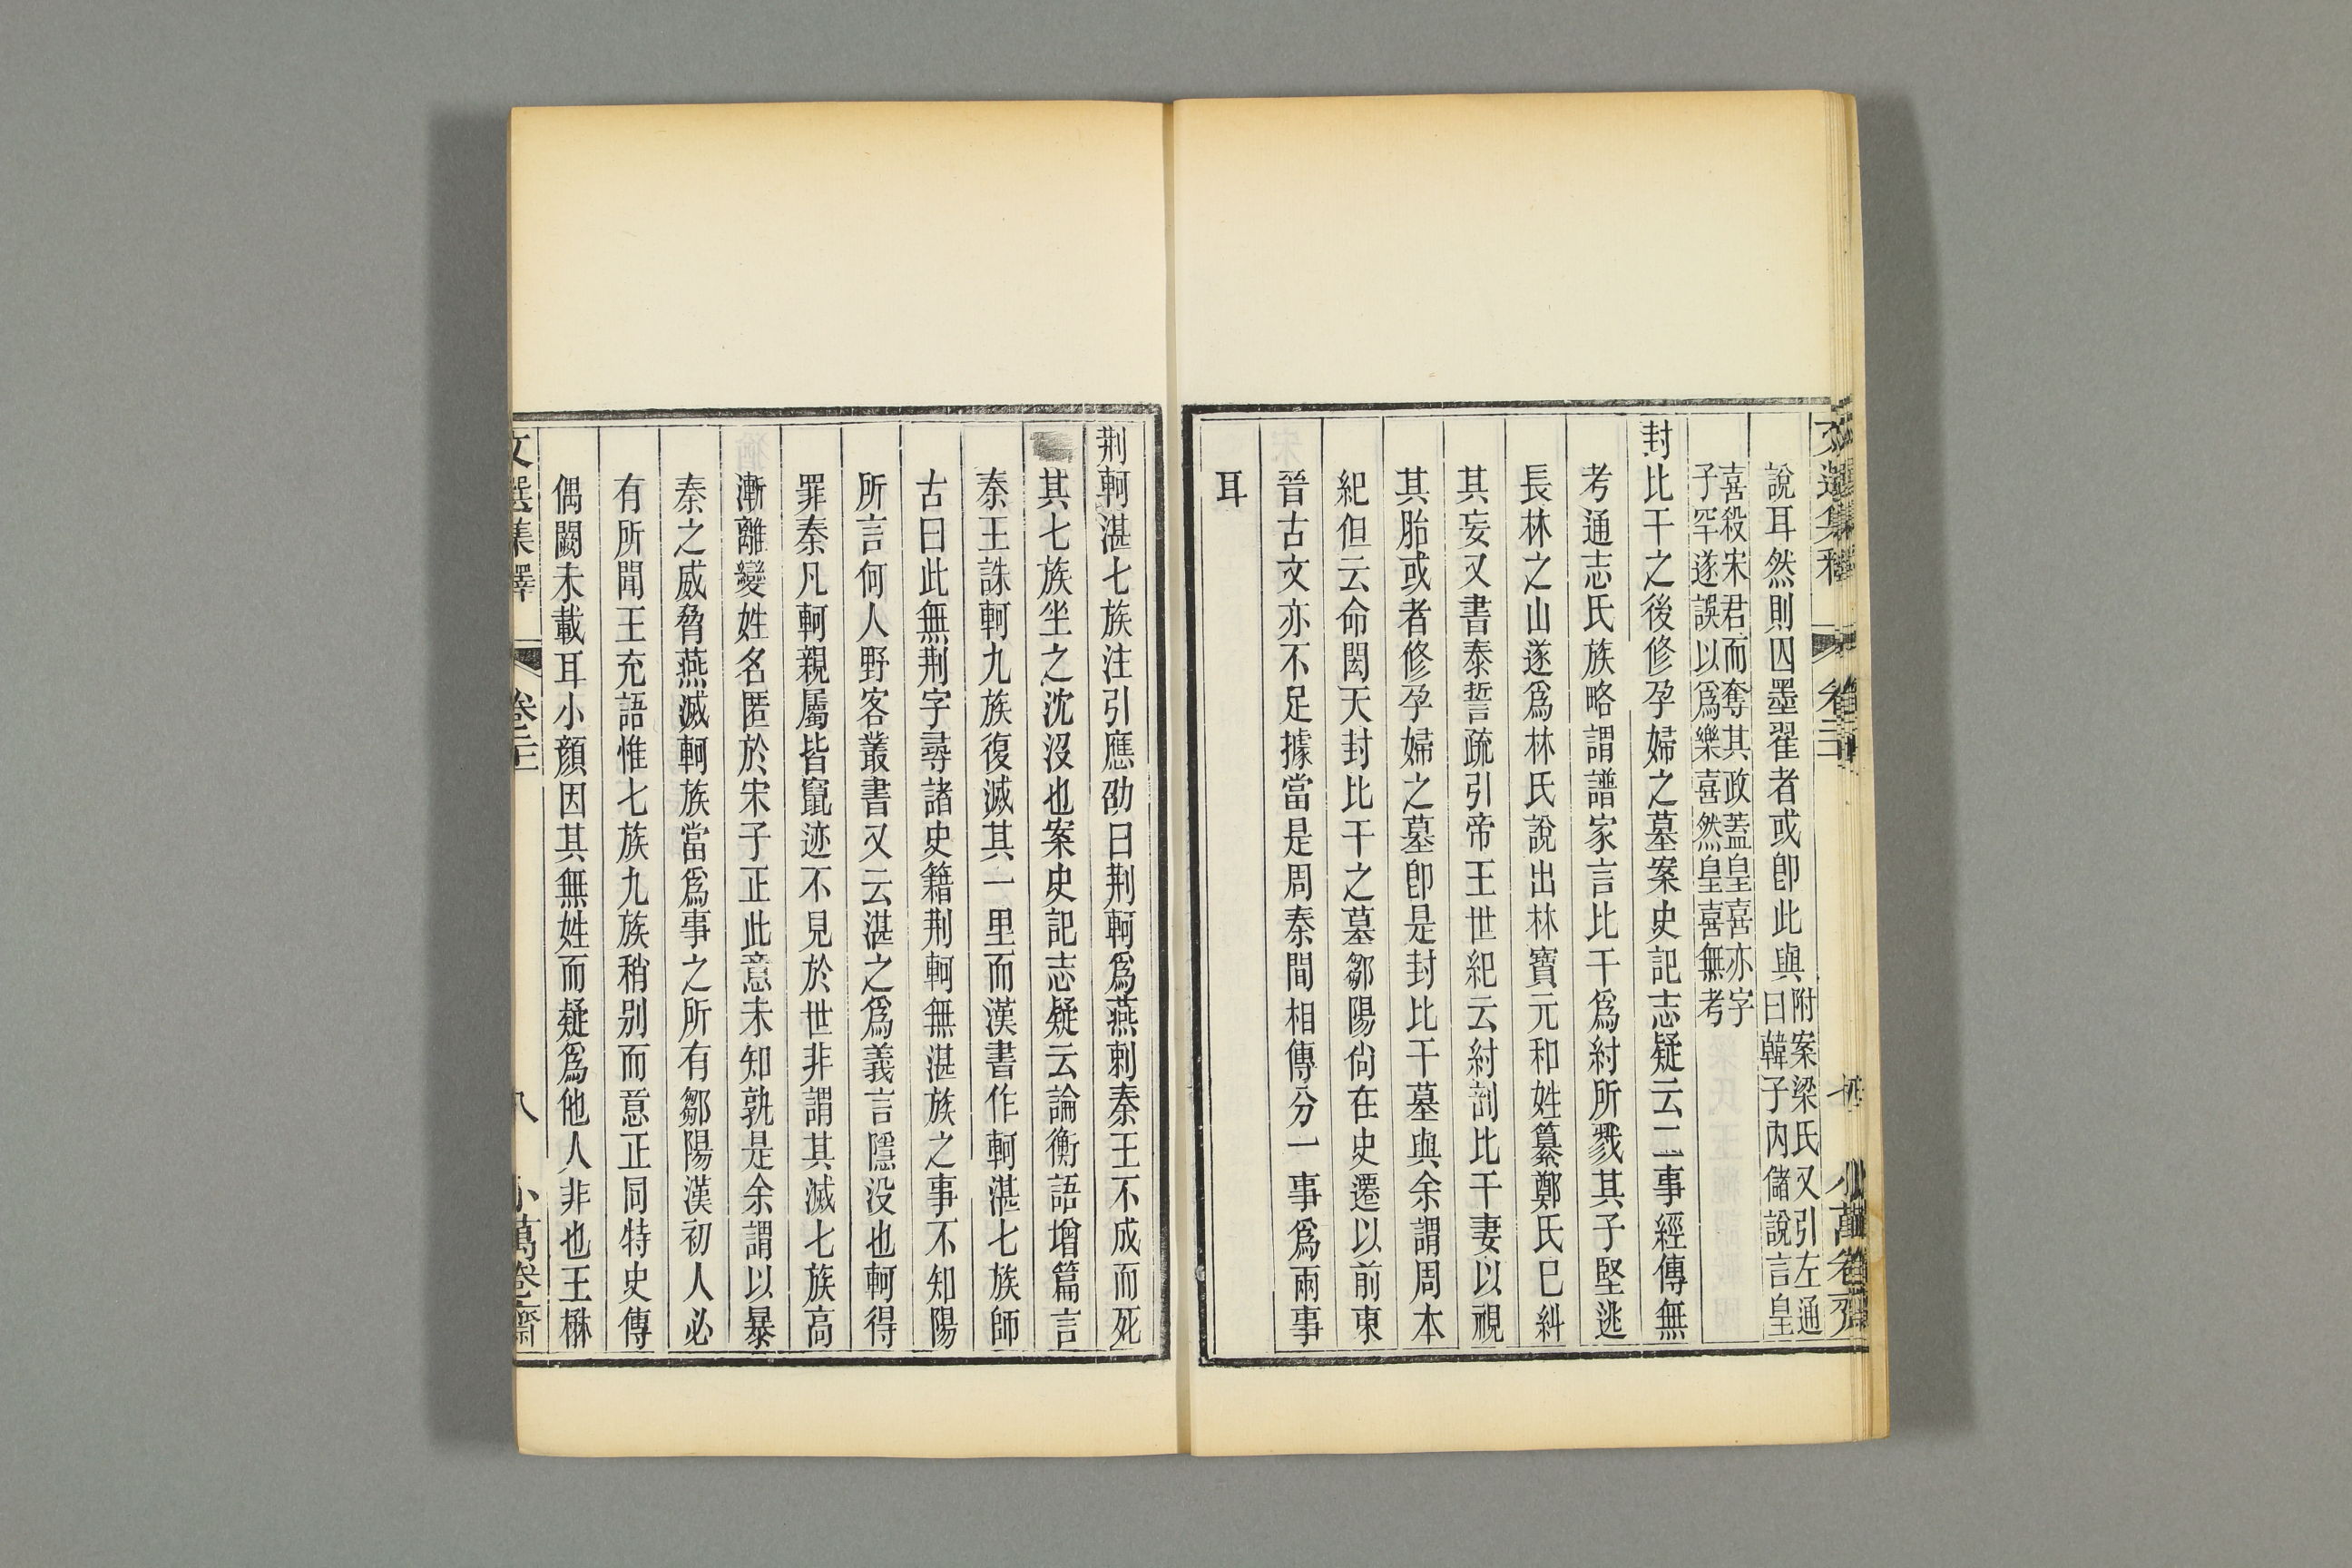 說耳然則囚墨翟者或卽此與附案梁氏又引左通曰韓子內儲說言皇
喜殺宋君而奪其政蓋皇喜亦字子罕遂誤以爲樂喜然皇喜無考
封比干之後修孕婦之墓案史記志疑云二事經傳無
考通志氏族略謂譜家言比干爲紂所戮其子堅逃
長林之山遂爲林氏說出林寶元和姓纂鄭氏已糾
其妄又書泰誓疏引帝王世紀云紂剖比干妻以視
其胎或者修孕婦之墓卽是封比干墓與余謂周本
紀但云命閎夭封比干之墓鄒陽尙在史遷以前東
晉古文亦不足據當是周秦間相傳分一事爲兩事
耳
荆軻湛七族注引應劭曰荆軻爲燕刺秦王不成而死
其七族坐之沈沒也案史記志疑云論衡語增篇言
秦王誅軻九族復滅其一里而漢書作軻湛七族師
古曰此無荆字尋諸史籍荆軻無湛族之事不知陽
所言何人野客叢書又云湛之爲義言隱没也軻得
罪秦凡軻親屬皆竄迹不見於世非謂其滅七族高
漸離變姓名匿於宋子正此意未知孰是余謂以暴
秦之威脅燕滅軻族當爲事之所有鄒陽漢初人必
有所聞王充語惟七族九族稍别而意正同特史傳
偶闕未載耳小顔因其無姓而疑爲他人非也王楙
文選集釋 卷二 八 小萬卷齋